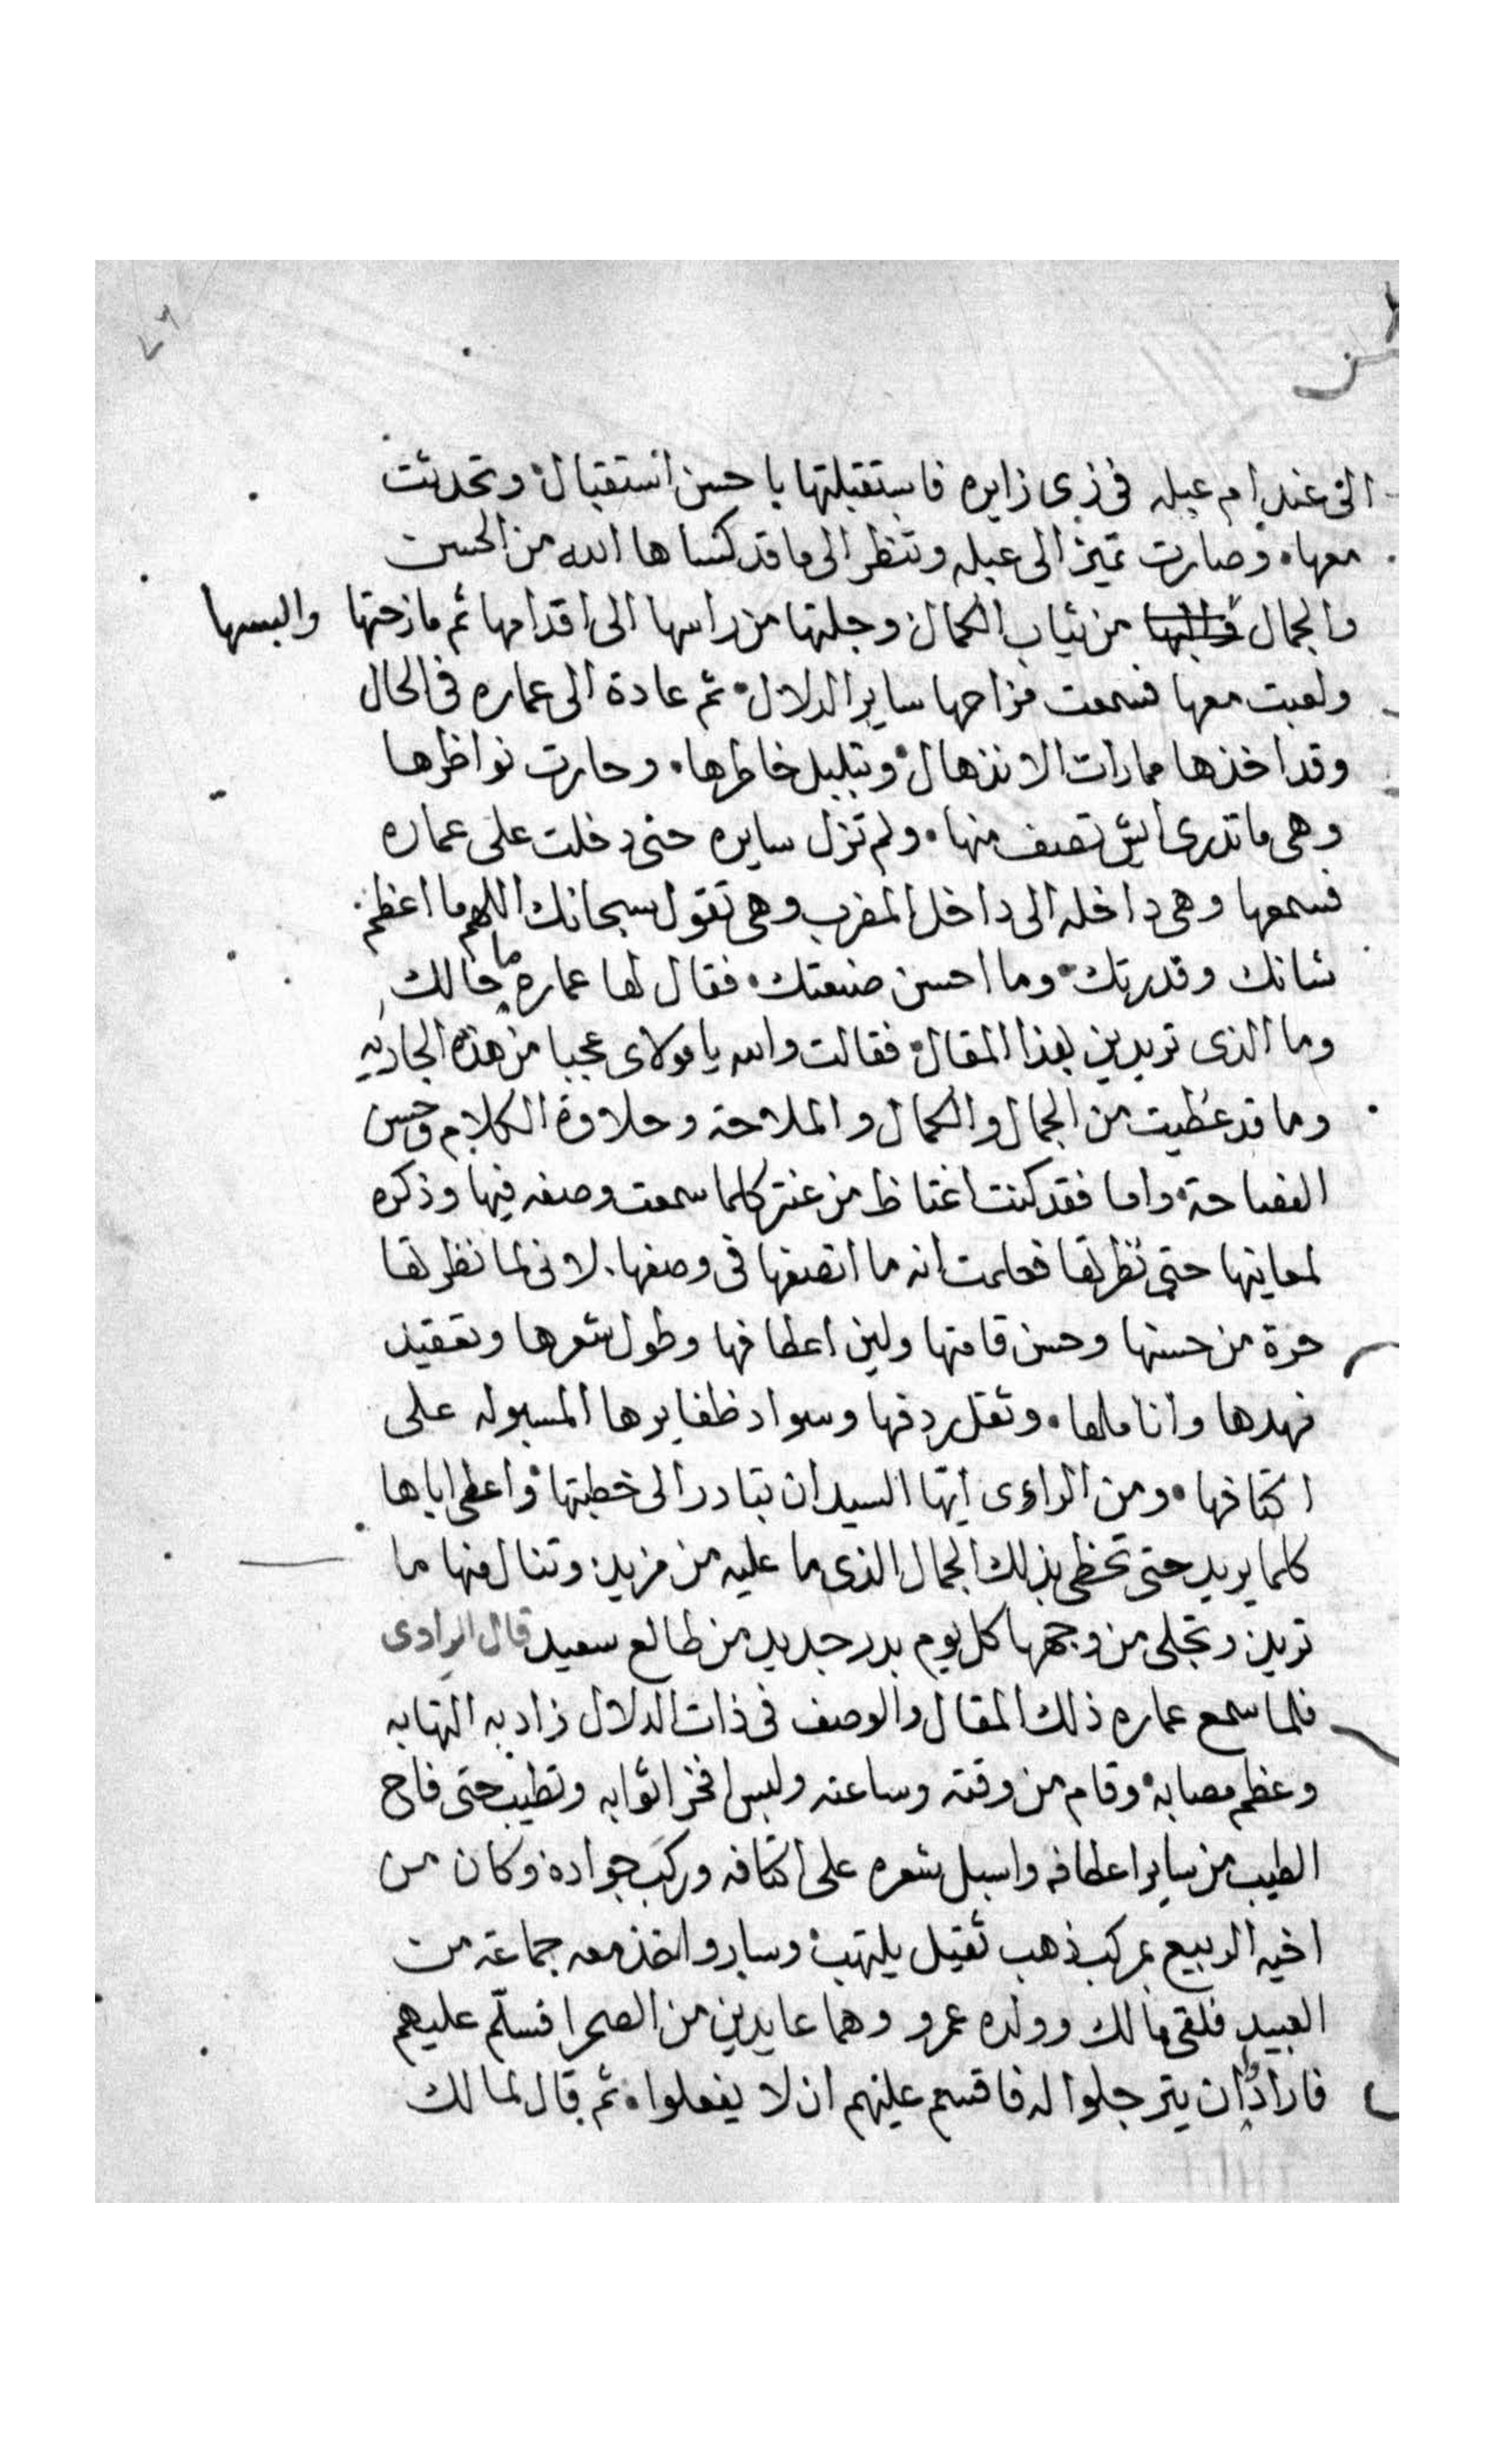 الى عند ام عبله فى زى زايره فاستقبلتها با حسن استقبال وتحدثت
معها وصارت تميز الى عبله وتنظر الى ما قد كساها الله من الحسن
والجمال والبسها من ثياب الكمال وجلتها من راسها الى اقدامها ثم مازحتها والبسها
ولعبت معها فسمعت مزاحها ساير الدلال ثم عادة الى عماره فى الحال
وقد اخذها مارات الانذهال وتبلبل خاطرها وحارت نواظرها
وهى ما تدرى ايش تصف منها ولم تزل سايره حتى دخلت على عماره
فسمعها وهى داخله الى داخل المضرب وهى تقول سبحانك اللهم ما اعظم
شانك وقدرتك وما احسن صنعتك فقال لها عماره ما حالك
وما الذى تريدين بهذا المقال فقالت والله يا مولاى عجبا من هذه الجاريه
وما قد عطيت من الجمال والكمال والملاحة وحلاوة الكلام وحسن
الفصاحة واما فقد كنت اغتاظ من عنتر كلما سمعت وصفه فيها وذكره
لمعانيها حتى نظرتها فعلمت انه ما انصفها فى وصفها لانى لما نظرتها
حرة من حسنها وحسن قامتها ولين اعطافها وطول شعرها وتعقيد
نهدها واناملها وثقل ردفها وسواد ظفايرها المسبوله على
اكتافها ومن الراوى ايها السيد ان تبادر الى خطبتها واعطى اباها
كلما يريد حتى تحظى بذلك الجمال الذى ما عليه من مزيد وتنال منها ما
تريد وتجلى من وجهها كل يوم بدر جديد من طالع سعيد قال الراوى
فلما سمع عماره ذلك المقال والوصف فى ذات الدلال زاد به التهابه
وعظم مصابه وقام من وقته وساعته ولبس افخر اثوابه وتطيب حتى فاح
الطيب من ساير اعطافه واسبل شعره على اكتافه وركب جواده وكان من
اخيه الربيع بمركب ذهب ثقيل يلتهب وسار واخذ معه جماعة من
العبيد فلقى مالك وولده عمرو وهما عايدين من الصحرا فسلم عليهم
فارادوا ان يترجلوا له فاقسم عليهم ان لا يفعلوا ثم قال لمالك